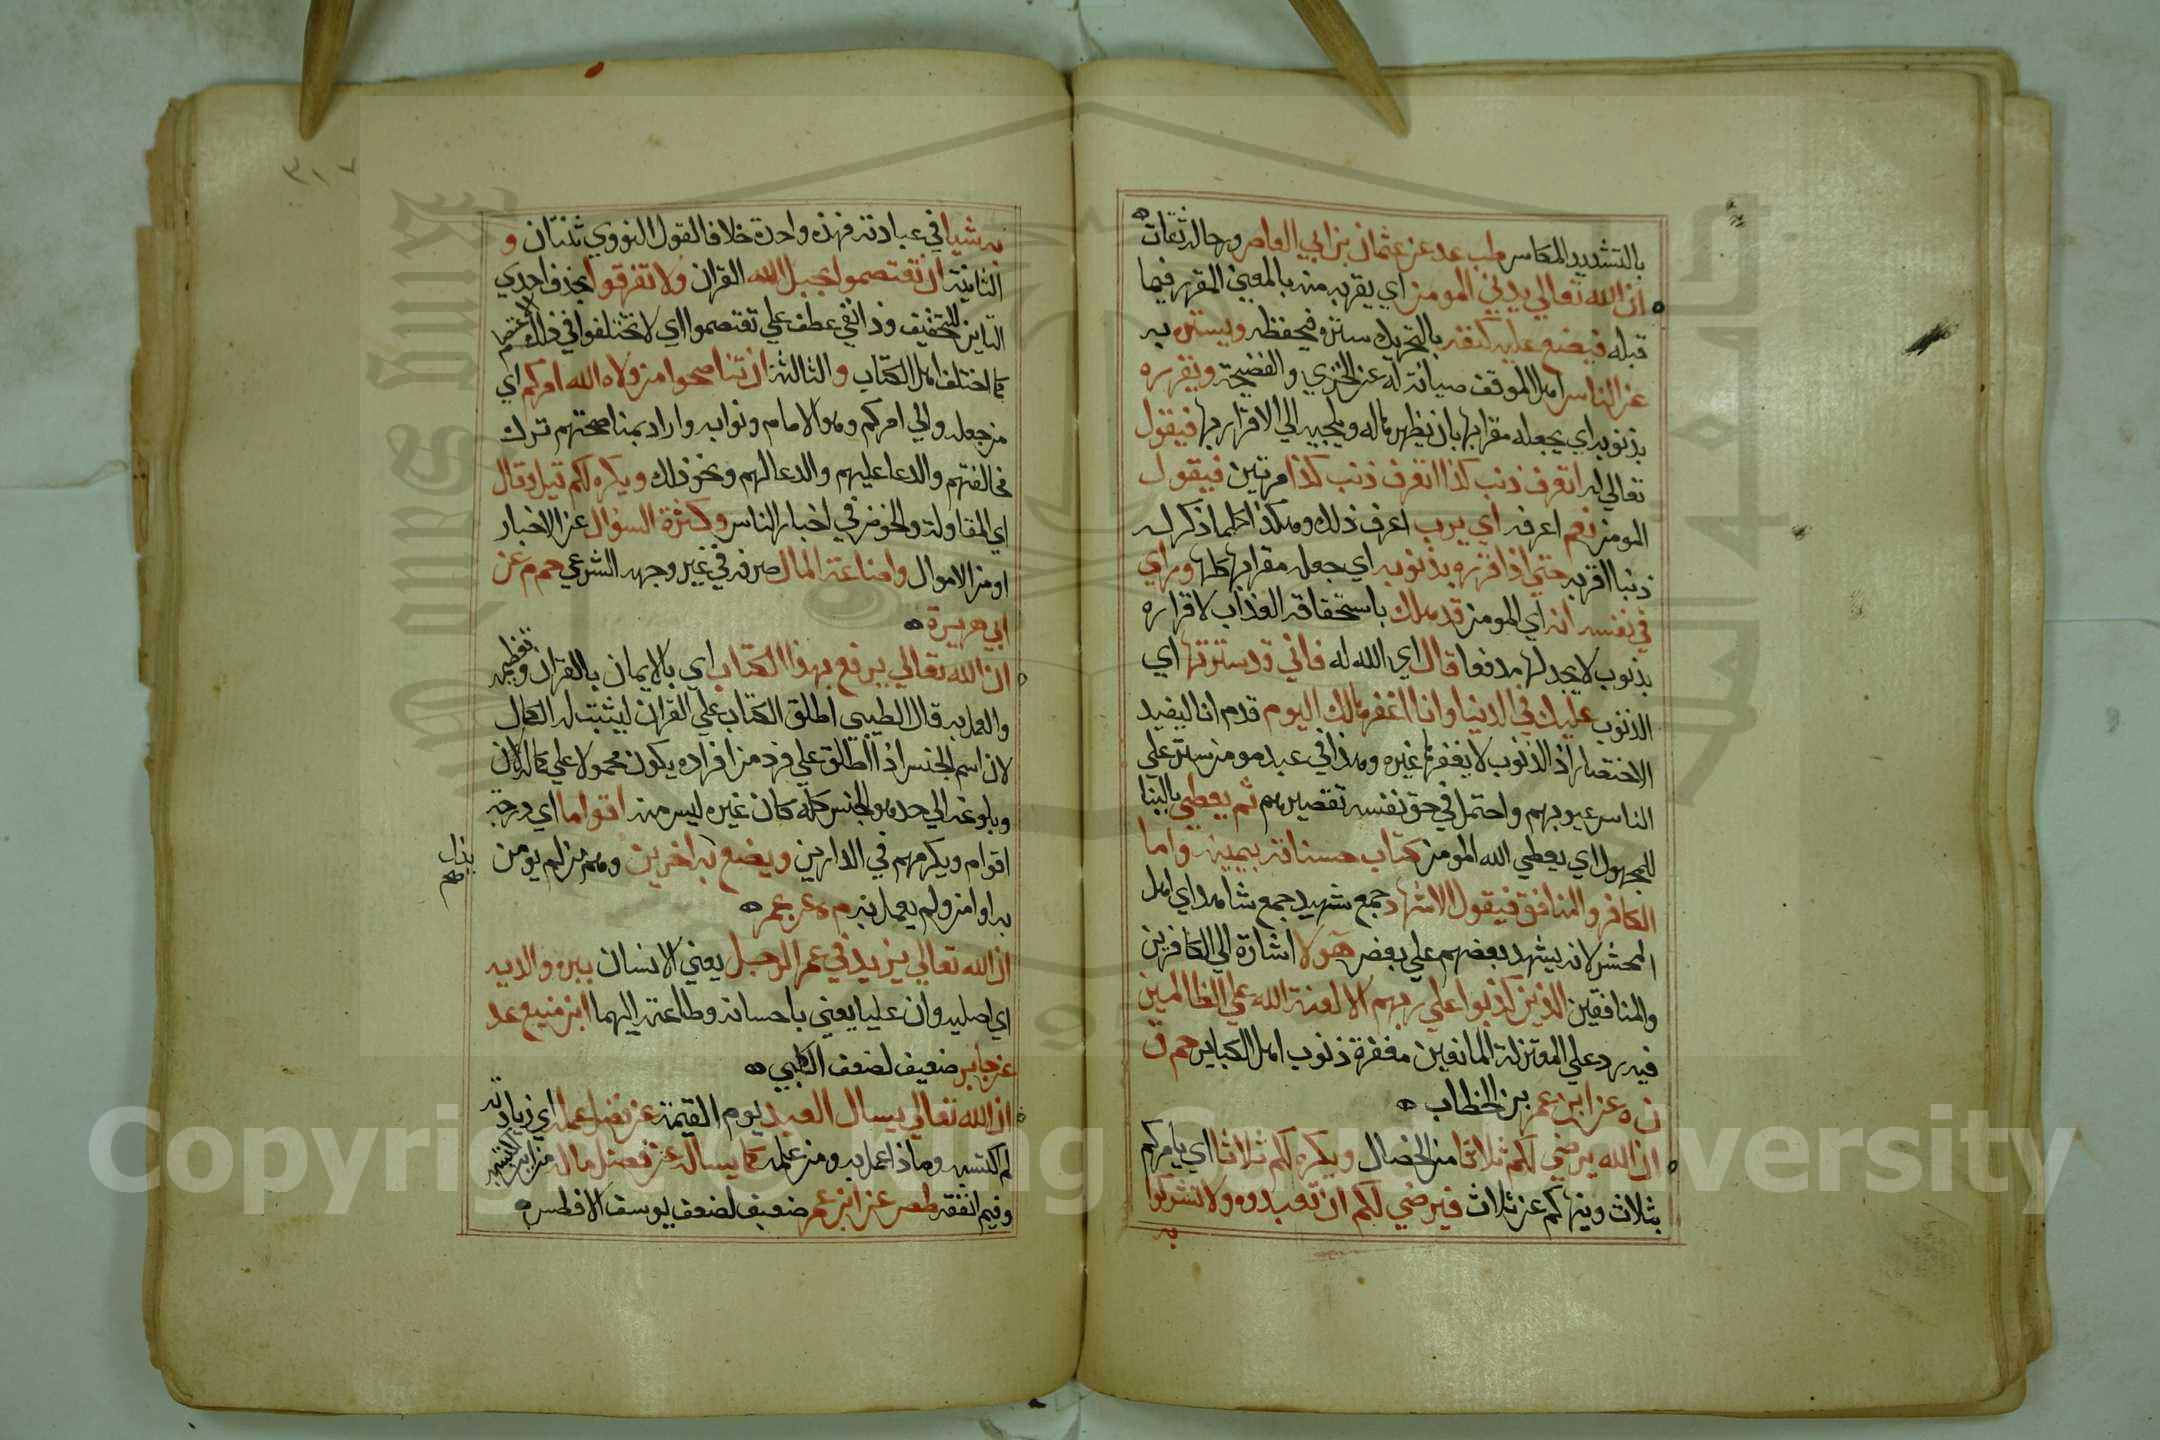 بالتشديد المكاس طب عد عن عثمان بن ابي العاص ورجاله ثقات
ان الله تعالي يدني المومن اي يقربه منه بالمعني المقرر فيما
قبله فيضع عليه كنفه بالتحريك ستره فيحفظه ويستره به
عن الناس اهل الموقف صيانة له عن الخزي والفضيحة ويقرره
بذنوبه اي يجعله مقرا بها بان يظهرها له ويلجيه الي الاقرار بها فيقول
تعالي له اتعرف ذنب كذا اتعرف ذنب كذا مرتين فيقول
المومن نعم اعرفه اي يرب اعرف ذلك وهكذا كلما ذكر له
ذنبا اقر به حتي اذا قرره بذنوبه اي جعله مقرا بها كلها وراي
في نفسه انه اي المومن قد هلك باستحقاقه العذاب لاقراره
بذنوب لا يجد لها مدفعا قال اي الله له فاني قد سترتها اي
الذنوب عليك في الدنيا وانا اغفرها لك اليوم قدم انا ليفيد
الاختصاص اذ الذنوب لا يغفرها غيره وهذا في عبد مومن ستر علي
الناس عيوبهم واحتمل في حق نفسه تقصيرهم ثم يعطي بالبنا
للمجهول اي يعطي الله المومن كتاب حسناته بيمينه واما
الكافر والمنافق فيقول الاشهاد جمع شهيد جمع شاهد اي اهل
المحشر لانه يشهد بعضهم علي بعض هولا اشارة الي الكافرين
والمنافقين الذين كذبوا علي ربهم الا لعنة الله علي الظالمين
فيه رد علي المعتزلة المانعين مغفرة ذنوب اهل الكباير حم ق
ن ه عن ابن عمر بن الخطاب
ان الله يرضي لكم ثلاثا من الخصال ويكره لكم ثلاثا اي يامركم
بثلاث وينهاكم عن ثلاث فيرضي لكم ان تعبدوه ولا تشركوا
به
به شيا في عبادته فهذه واحدة خلافا لقول النووي ثنتان و
الثانية ان تعتصموا بحبل الله القران ولا تفرقوا بحذف احدي
التاين للتخفيف وذا نفي عطف علي تعتصموا اي لا تختلفوا في ذلك الاعتصام
كما اختلف اهل الكتاب والثالثة ان تناصحوا من ولاه الله امركم اي
من جعله والي امركم وهو الامام ونوابه واراد بمناصحتهم ترك
مخالفتهم والدعا عليهم والدعا لهم ونحو ذلك ويكره لكم قيل وقال
اي المقاولة والخوض في اخبار الناس وكثرة السؤال عن الاخبار
او من الاموال واضاعة المال صرفه في غير وجهه الشرعي حم م عن
ابي هريرة
ان الله تعالي يرفع بهذا الكتاب اي بالايمان بالقران وتعظيمه
والعمل به قال الطيبي اطلق الكتاب علي القران ليثبت له الكمال
لان اسم الجنس اذا اطلق علي فرد من افراده يكون محمولا علي كماله لان
وبلوغه الي حد هو الجنس كله كان غيره ليس منه اقواما اي درجة
اقوام ويكرمهم في الدارين ويضع به اخرين وهم من لم يومن
به او امن ولم يعمل به م ه عن عمر
ان الله تعالي يزيد في عمر الرجل يعني الانسان ببره والديه
اي اصليه وان عليا يعني باحسانه وطاعته اليهما ابن منيع عد
عن جابر ضعيف لضعف الكلبي
ان الله تعالي يسال العبد يوم القيمة عن فضل عمله اي زيادته
لم اكتسبه وماذا عمل به ومن علمه كما يساله عن فضل ماله من اين اكتسبه
وفيم انفقه طص عن ابن عمر ضعيف لضعف يوسف الافطس
Copyright © King Saud University